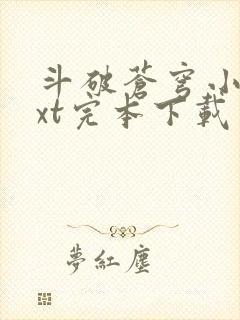 斗破蒼穹小
xt完本下載
夢紅塵